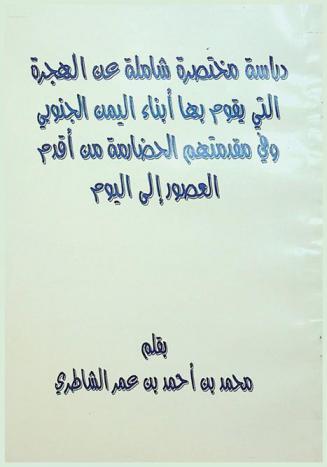 دراسة مختصرة شاملة عن الهجرة
التي يقوم بها أبناء اليمن الجنوبي
وفي مقدمتهم الحضارمة من أقدم
العصور إلى اليوم
بقلم
محمد بن أحمد بن عمر الشاطري